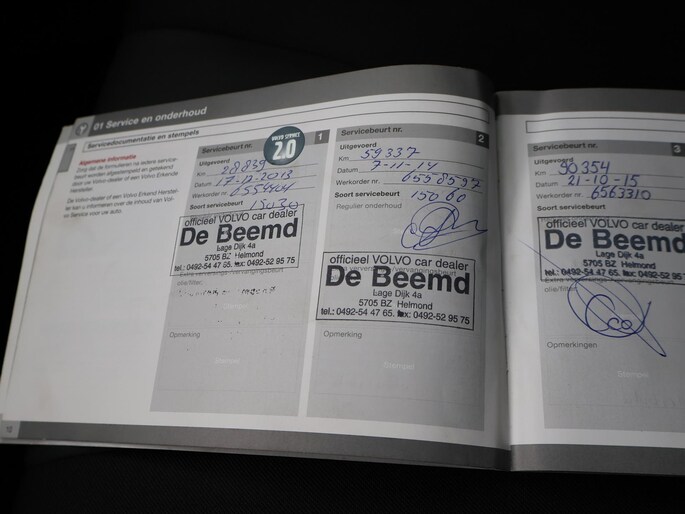 01 Service en onderhoud
Servicedocumentatie en stempels
Algemene informatie
Zorg dat de formulieren na iedere service-
beurt worden afgestempeld en getekend
door uw Volvo-dealer of een Volvo Erkende
Hersteller.
De Volvo-dealer of een Volvo Erkend Herstel-
ler kan u informeren over de inhoud van Vol-
vo Service voor uw auto.
12
Servicebeurt nr. 1
VOLVO SERVICE
2.0
Uitgevoerd
Km 28839
Datum 17-12-2013
Werkorder nr. 6554404
Soort servicebeurt 15030
officieel VOLVO car dealer
De Beemd
Lage Dijk 4a
5705 BZ Helmond
tel.: 0492-54 47 65. fax: 0492-52 95 75
olie/filter
Opmerking
Stempel
Servicebeurt nr. 2
Uitgevoerd
Km 59337
Datum 7-11-14
Werkorder nr. 6558537
Soort servicebeurt 15060
Regulier onderhoud
officieel VOLVO car dealer
De Beemd
Lage Dijk 4a
5705 BZ Helmond
tel.: 0492-54 47 65. fax: 0492-52 95 75
Opmerking
Stempel
Servicebeurt nr. 3
Uitgevoerd
Km 90354
Datum 21-10-15
Werkorder nr. 6563310
Soort servicebeurt
officieel VOLVO car dealer
De Beemd
Lage Dijk 4a
5705 BZ Helmond
tel.: 0492-54 47 65. fax: 0492-52 95
olie/filter
Opmerkingen
Stempel